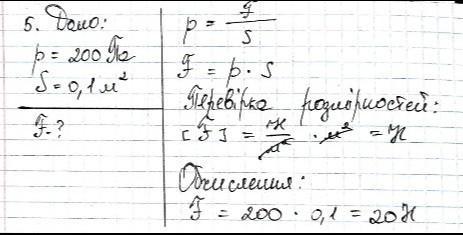 5. Дано:
p = 200 Па
S = 0,1 м²
F - ?
p = F/S
F = p · S
Перевірка розмірностей:
[F] = Н/м² · м² = Н
Обчислення:
F = 200 · 0,1 = 20 Н